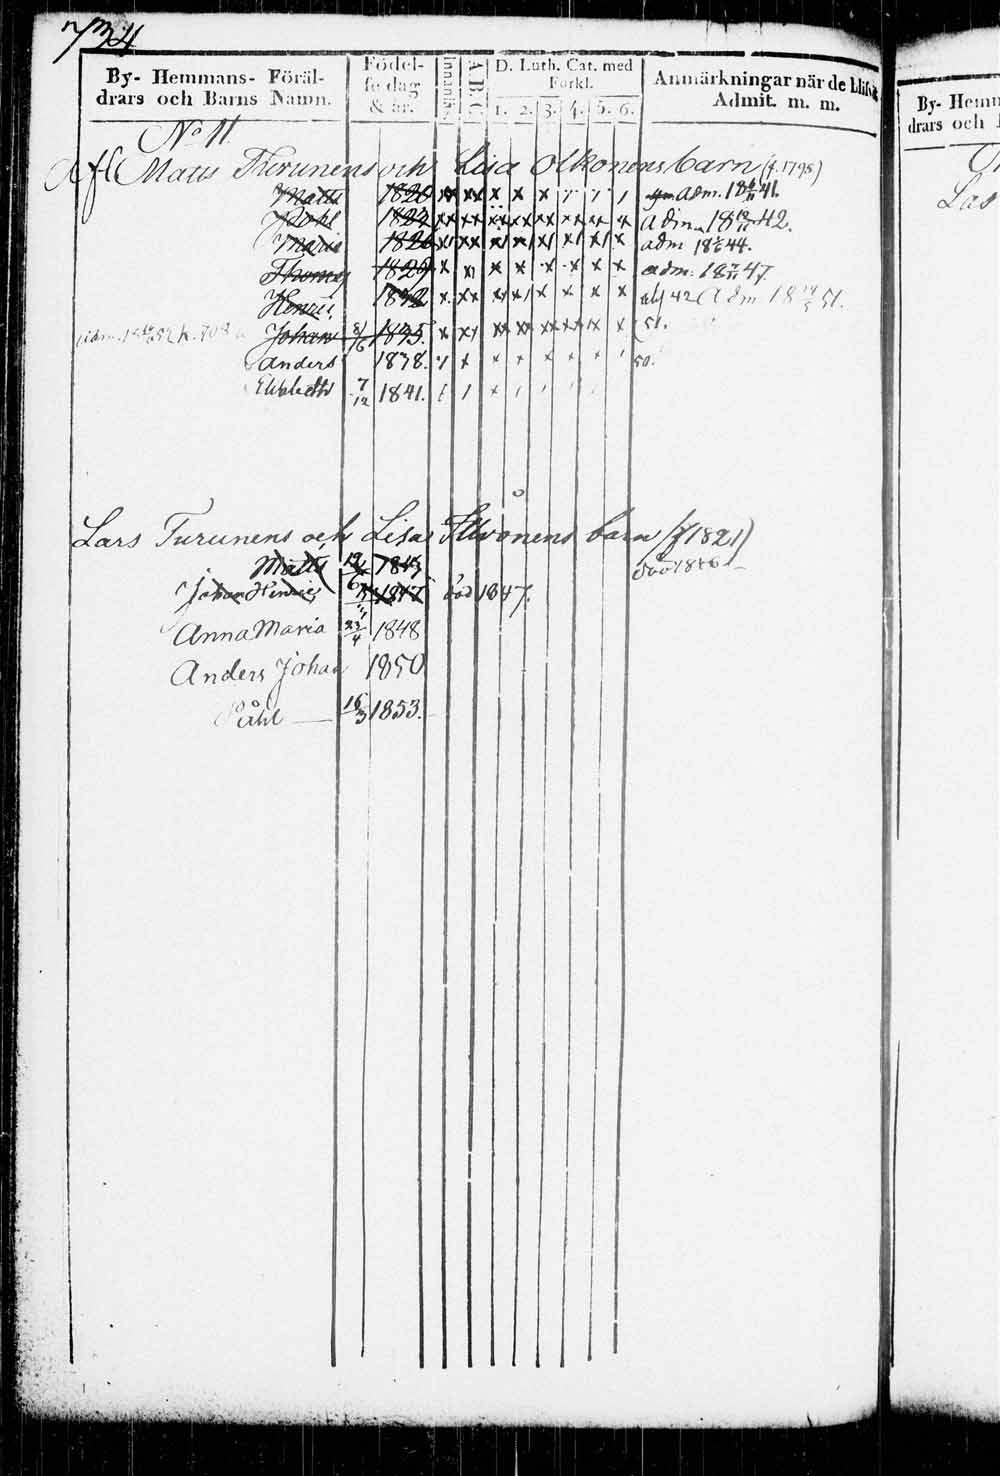 734
By- Hemmans- Föräl-
drars och Barns Namn.
Födel-
se dag
& år.
Innanläs.
A.B.C.
D. Luth. Cat. med
Förkl.
1. 2. 3. 4. 5. 6.
Anmärkningar när de blifvit
Admit. m. m.
No 11
Afl. Matts Thurunens och Lisa Olkonens barn (f. 1795)
Matts 1820 x xx x x x 7 7 1 adm. 18 41.
Påhl 1822 adm. 18 42.
Maria 1826 adm 18 44.
Thomas 1829 x x x x x x x adm: 18 47.
Henric 1832 42 Adm 18 51.
adm. 18 52 p. 708 Johan 8/6 1835. 51.
Anders 1838. 50.
Elisabeth 7/12 1841.
Lars Turunens och Lisa Ilvonens barn (f 1821)
Matts 1843 död 1846
Johan Henric 1847 död 1847.
Anna Maria 22/4 1848
Anders Johan 1850
Påhl — 16/3 1853.
By- Hemm
drars och
Las